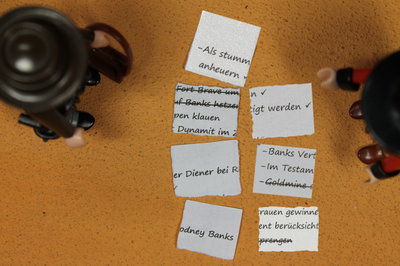 -Als stumm
anheuern ✓
Fort Brave um
uf Banks hetzen
pen klauen
Dynamit im Z
n ✓
tigt werden ✓
er Diener bei R
✓
-Banks Vert
-Im Testam
-Goldmine s
odney Banks
rauen gewinne
ent berücksicht
prengen